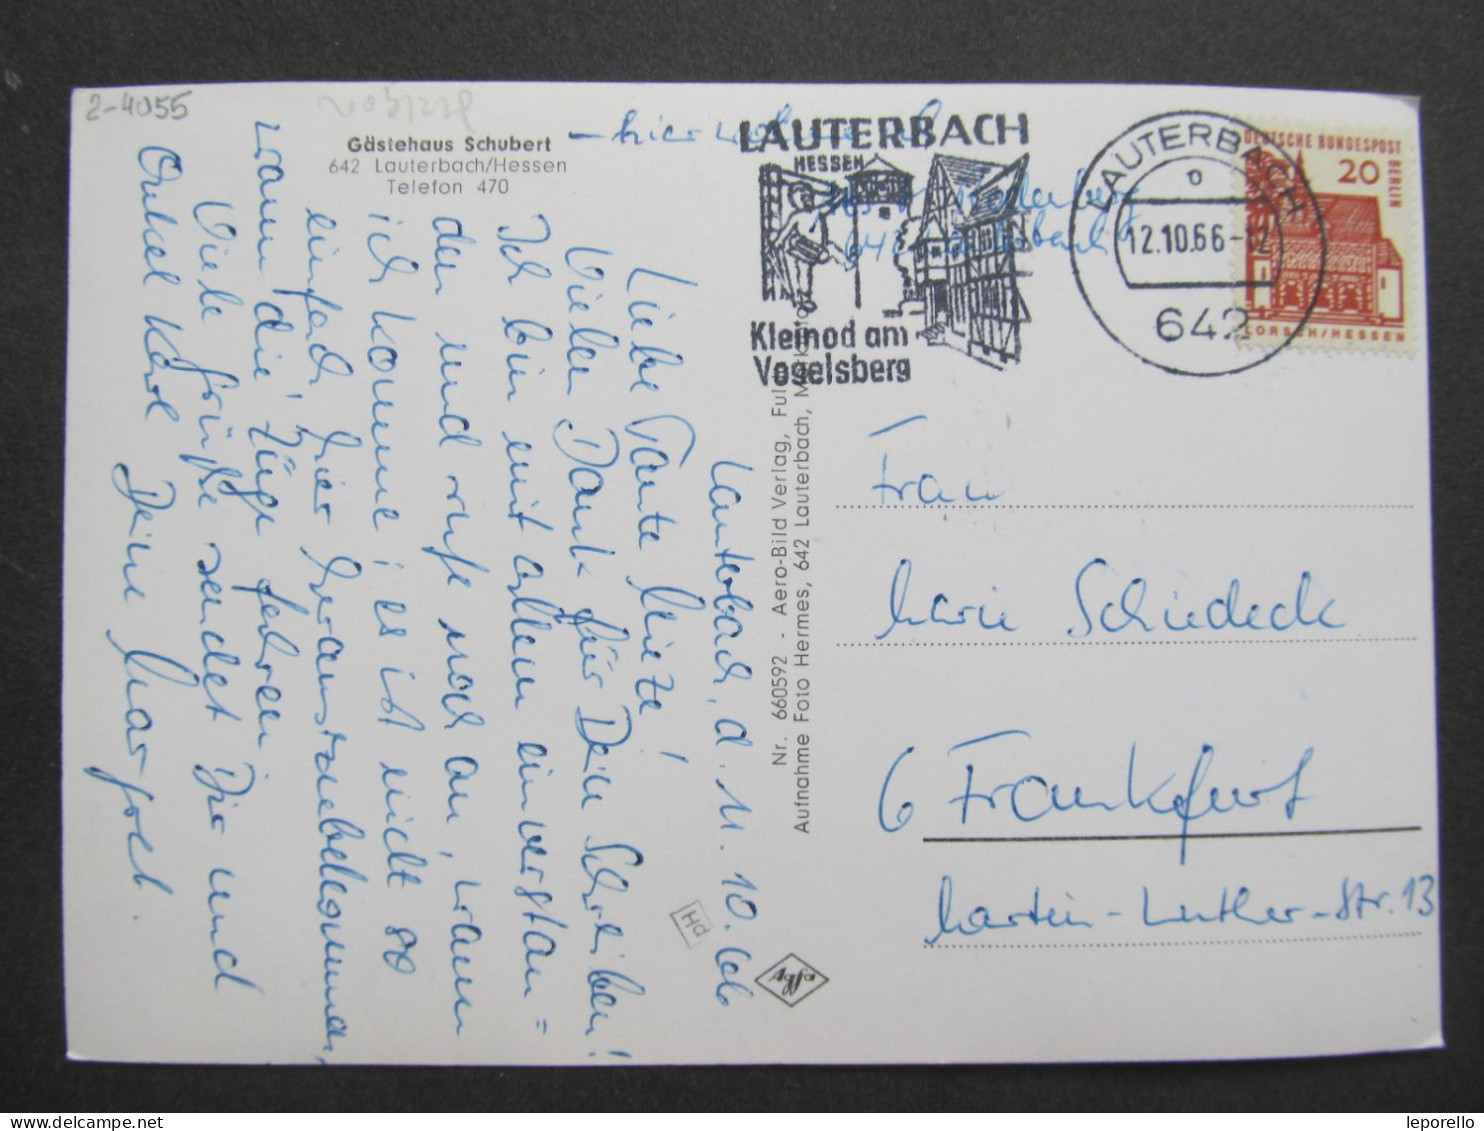 2-4055
Gästehaus Schubert
642 Lauterbach/Hessen
Telefon 470
- hier
LAUTERBACH
HESSEN
Kleinod am
Vogelsberg
LAUTERBACH
12.10.66-12
642
DEUTSCHE BUNDESPOST
BERLIN
20
LORSCH/HESSEN
Lauterbach, d. 11. 10. 66
Liebe Tante Mieze!
Vielen Dank für Dein Schreiben!
Ich bin mit allem einverstan=
den und rufe noch an, wann
ich komme; es ist nicht so
einfach, hier herauszubekommen,
wann die Züge fahren.
Viele Grüße sendet Dir und
Onkel Karl Deine Margret.
Nr. 660592 - Aero-Bild Verlag, Ful
Aufnahme Foto Hermes, 642 Lauterbach,
Hd
Agfa
Frau
Marie Schiedeck
6 Frankfurt
Martin-Luther-Str. 13
leporello